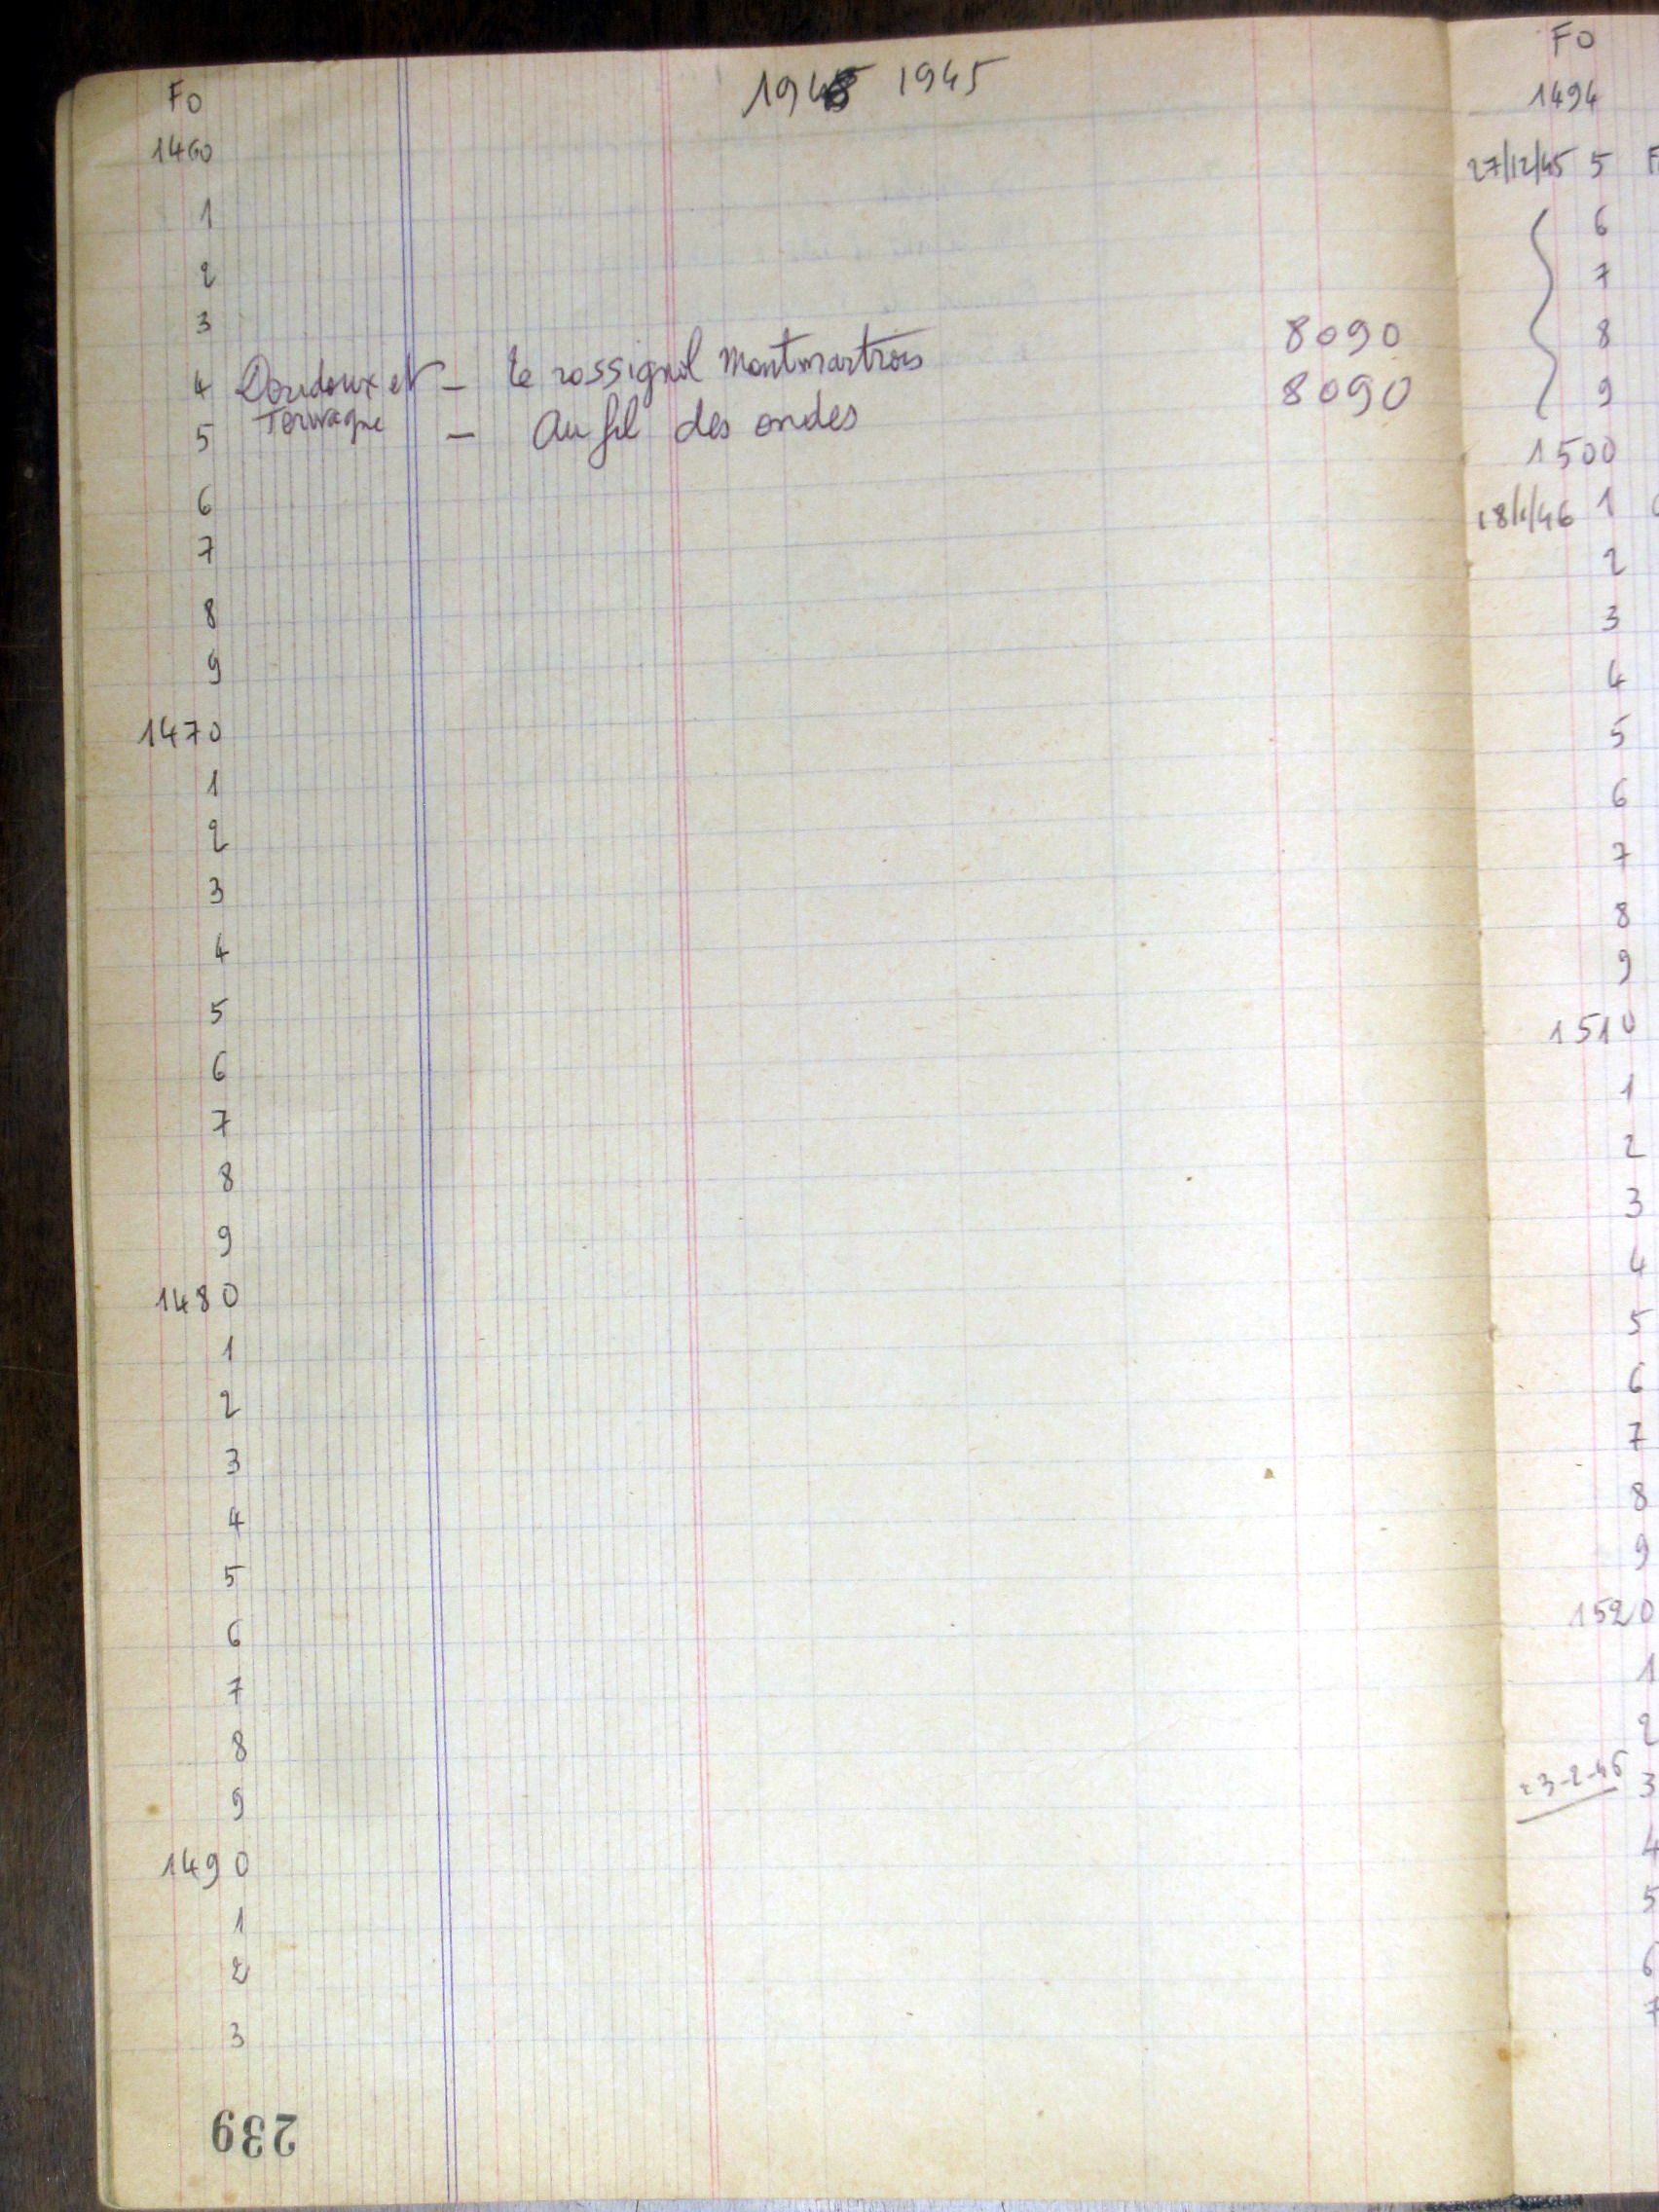 Fo
1945 1945
1460
1
2
3
4 Doudoux et – Le rossignol Montmartrois 8090
5 Terwagne – Au fil des ondes 8090
6
7
8
9
1470
1
2
3
4
5
6
7
8
9
1480
1
2
3
4
5
6
7
8
9
1490
1
2
3
239
Fo
1494
27/12/45 5 F
6
7
8
9
1500
18/1/46 1
2
3
4
5
6
7
8
9
1510
1
2
3
4
5
6
7
8
9
1520
1
2
3
4
5
6
7